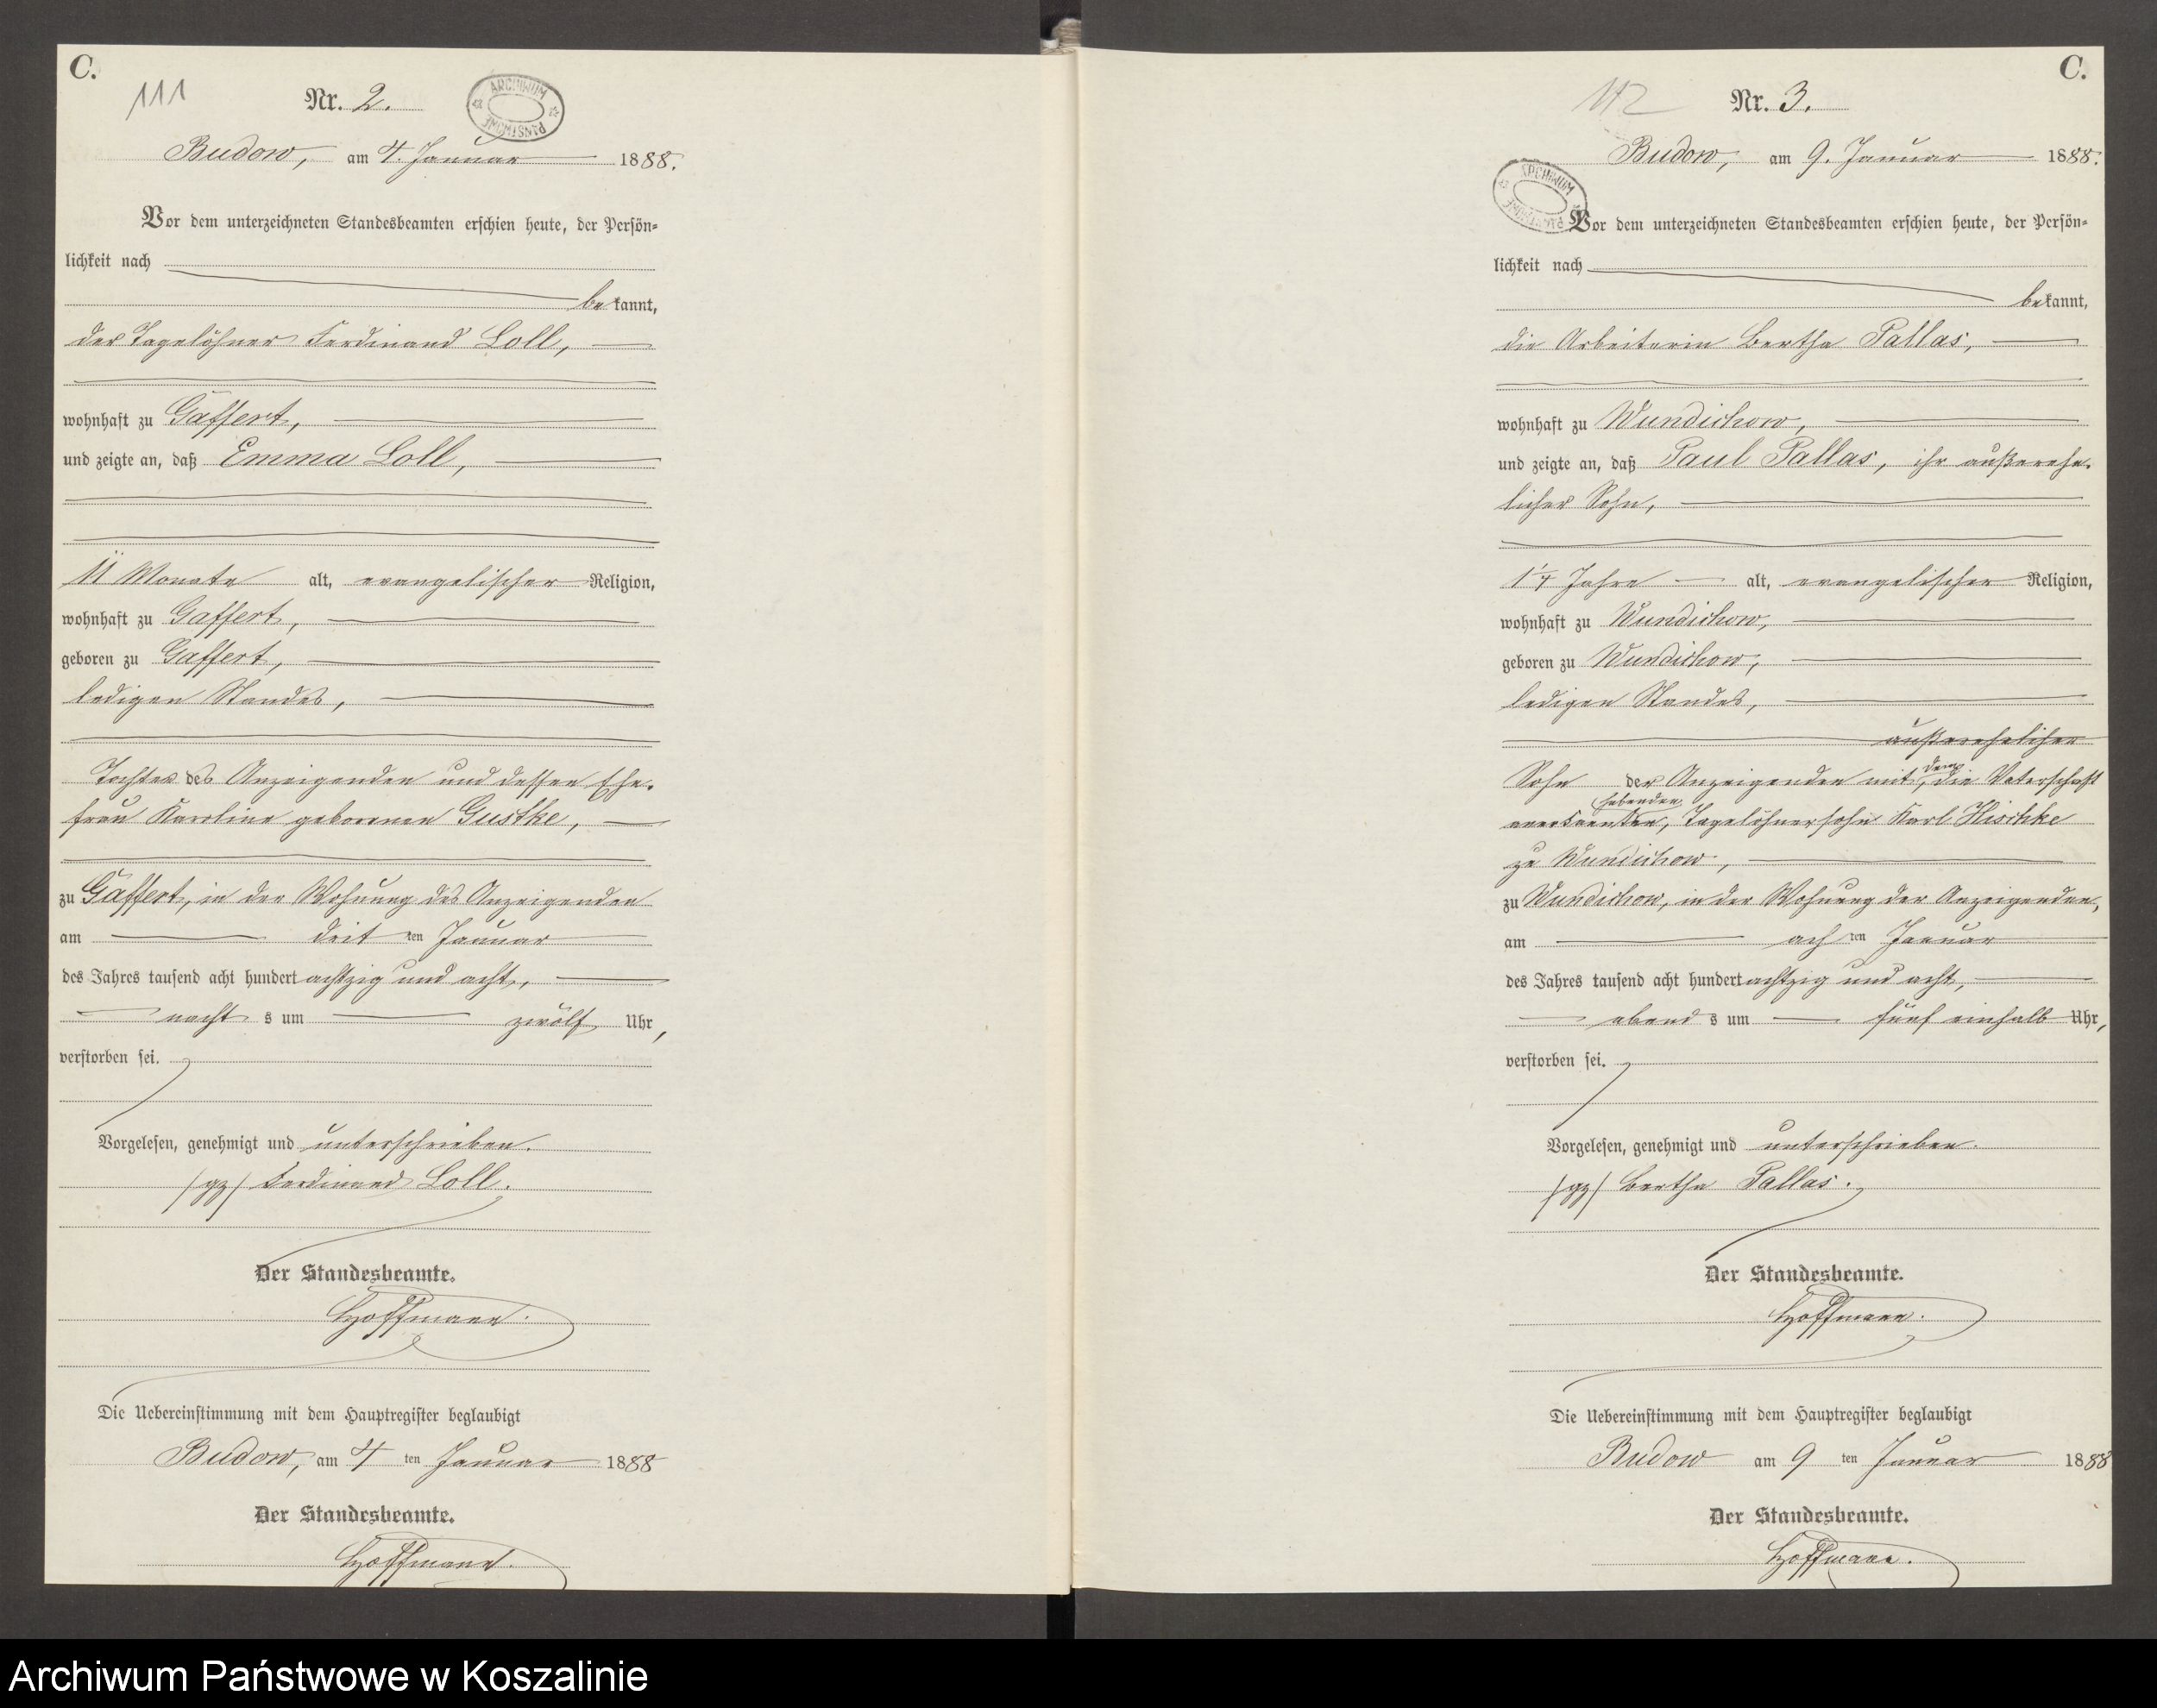 C.
111
Nr. 2.
ARCHIWUM PAŃSTWOWE
Budow, am 4. Januar 1888.
Vor dem unterzeichneten Standesbeamten erschien heute, der Persön-
lichkeit nach
bekannt,
der Tagelöhner Ferdinand Loll,
wohnhaft zu Gaffert,
und zeigte an, daß Emma Loll,
11 Monate alt, evangelischer Religion,
wohnhaft zu Gaffert,
geboren zu Gaffert,
ledigen Standes,
Tochter des Anzeigenden und dessen Ehe-
frau Karoline geborenen Gustke,
zu Gaffert, in der Wohnung des Anzeigenden
am drit ten Januar
des Jahres tausend acht hundert achtzig und acht,
nacht s um zwölf Uhr,
verstorben sei.
Vorgelesen, genehmigt und unterschrieben.
/gz/ Ferdinand Loll.
Der Standesbeamte.
Hoffmann.
Die Uebereinstimmung mit dem Hauptregister beglaubigt
Budow, am 4 ten Januar 1888
Der Standesbeamte.
Hoffmann.
C.
112
Nr. 3.
ARCHIWUM PAŃSTWOWE
Budow, am 9. Januar 1888.
Vor dem unterzeichneten Standesbeamten erschien heute, der Persön-
lichkeit nach
bekannt,
die Arbeiterin Bertha Pallas,
wohnhaft zu Wundichow,
und zeigte an, daß Paul Pallas, ihr außerehe-
licher Sohn,
1 1/4 Jahre alt, evangelischer Religion,
wohnhaft zu Wundichow,
geboren zu Wundichow,
ledigen Standes,
außerehelicher
Sohn der Anzeigenden mit dem, die Vaterschaft
anerkannten habenden, Tagelöhnersohn Karl Hischke
zu Wundichow,
zu Wundichow, in der Wohnung der Anzeigenden,
am ach ten Januar
des Jahres tausend acht hundert achtzig und acht,
abend s um fünf einhalb Uhr,
verstorben sei.
Vorgelesen, genehmigt und unterschrieben.
/gz/ Bertha Pallas.
Der Standesbeamte.
Hoffmann.
Die Uebereinstimmung mit dem Hauptregister beglaubigt
Budow am 9 ten Januar 1888
Der Standesbeamte.
Hoffmann.
Archiwum Państwowe w Koszalinie